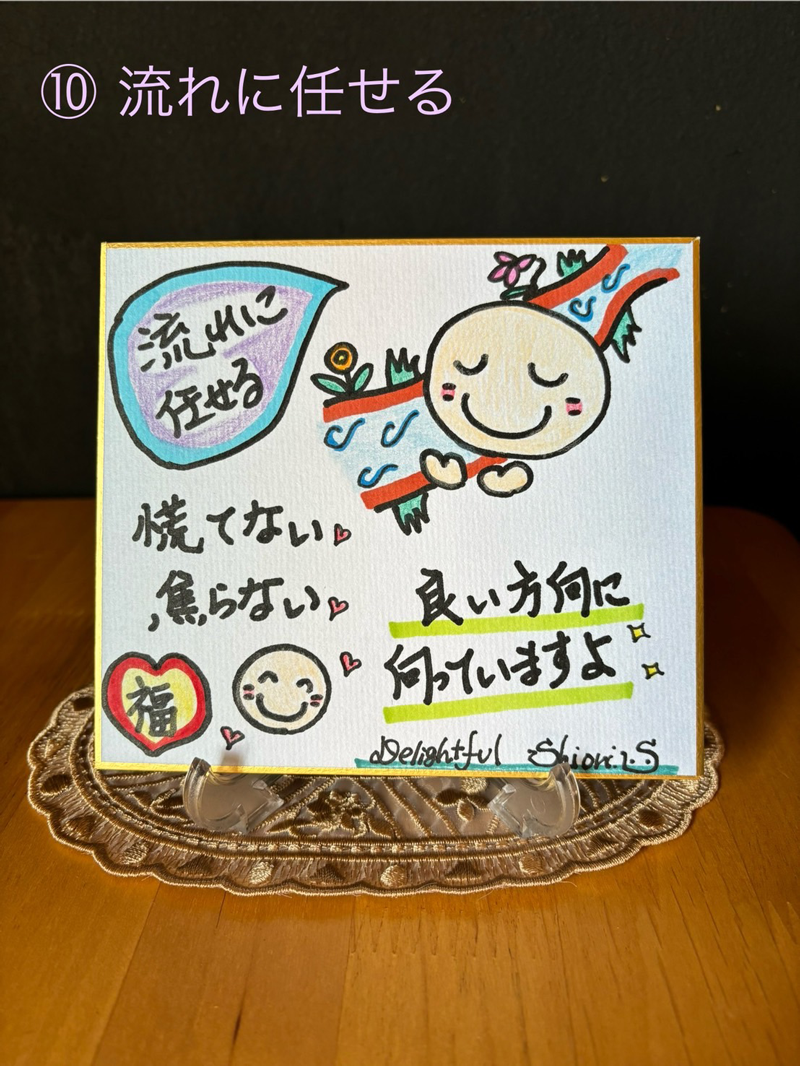 ⑩ 流れに任せる
流れに
任せる
慌てない
焦らない
良い方向に
向っていますよ
福
Delightful Shiori.S